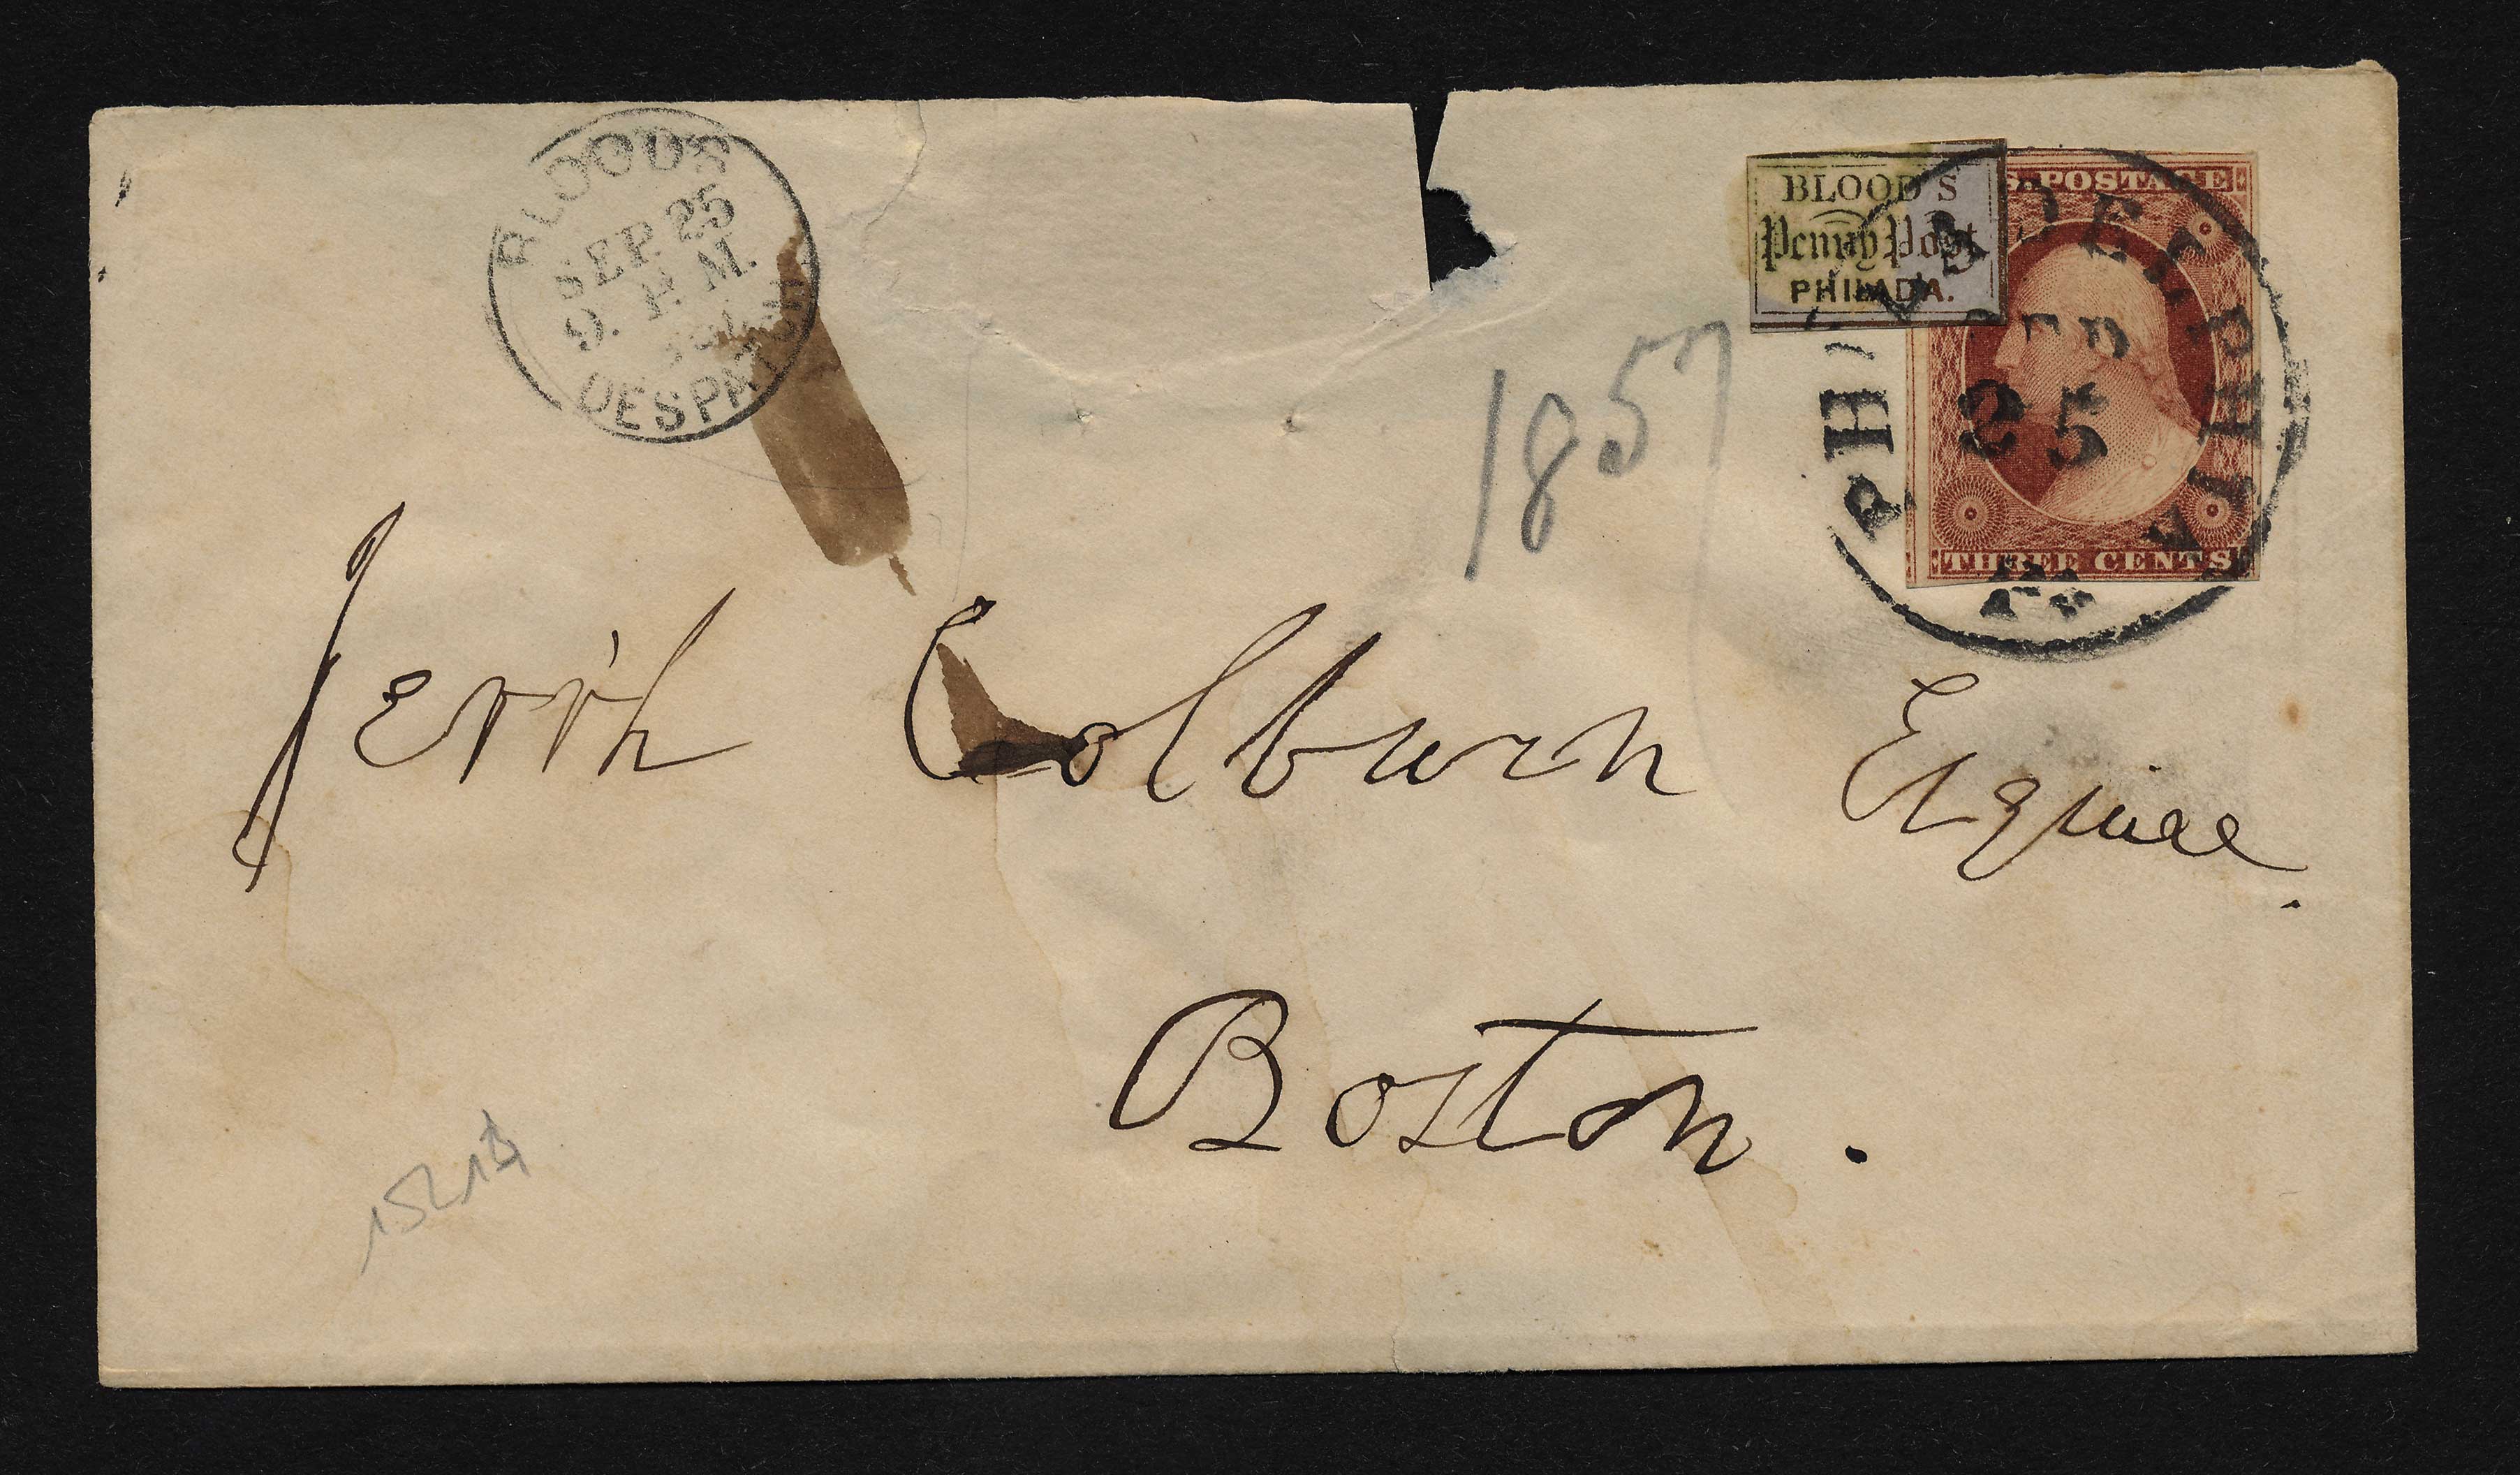 BLOOD'S
SEP. 25
P. M.
DESPATCH
BLOOD'S
Penny Post
PHILAD'A.
S. POSTAGE
THREE CENTS
PHILADELPHIA
SEP
25
1857
Jer'h Colburn Esquire.
Boston.